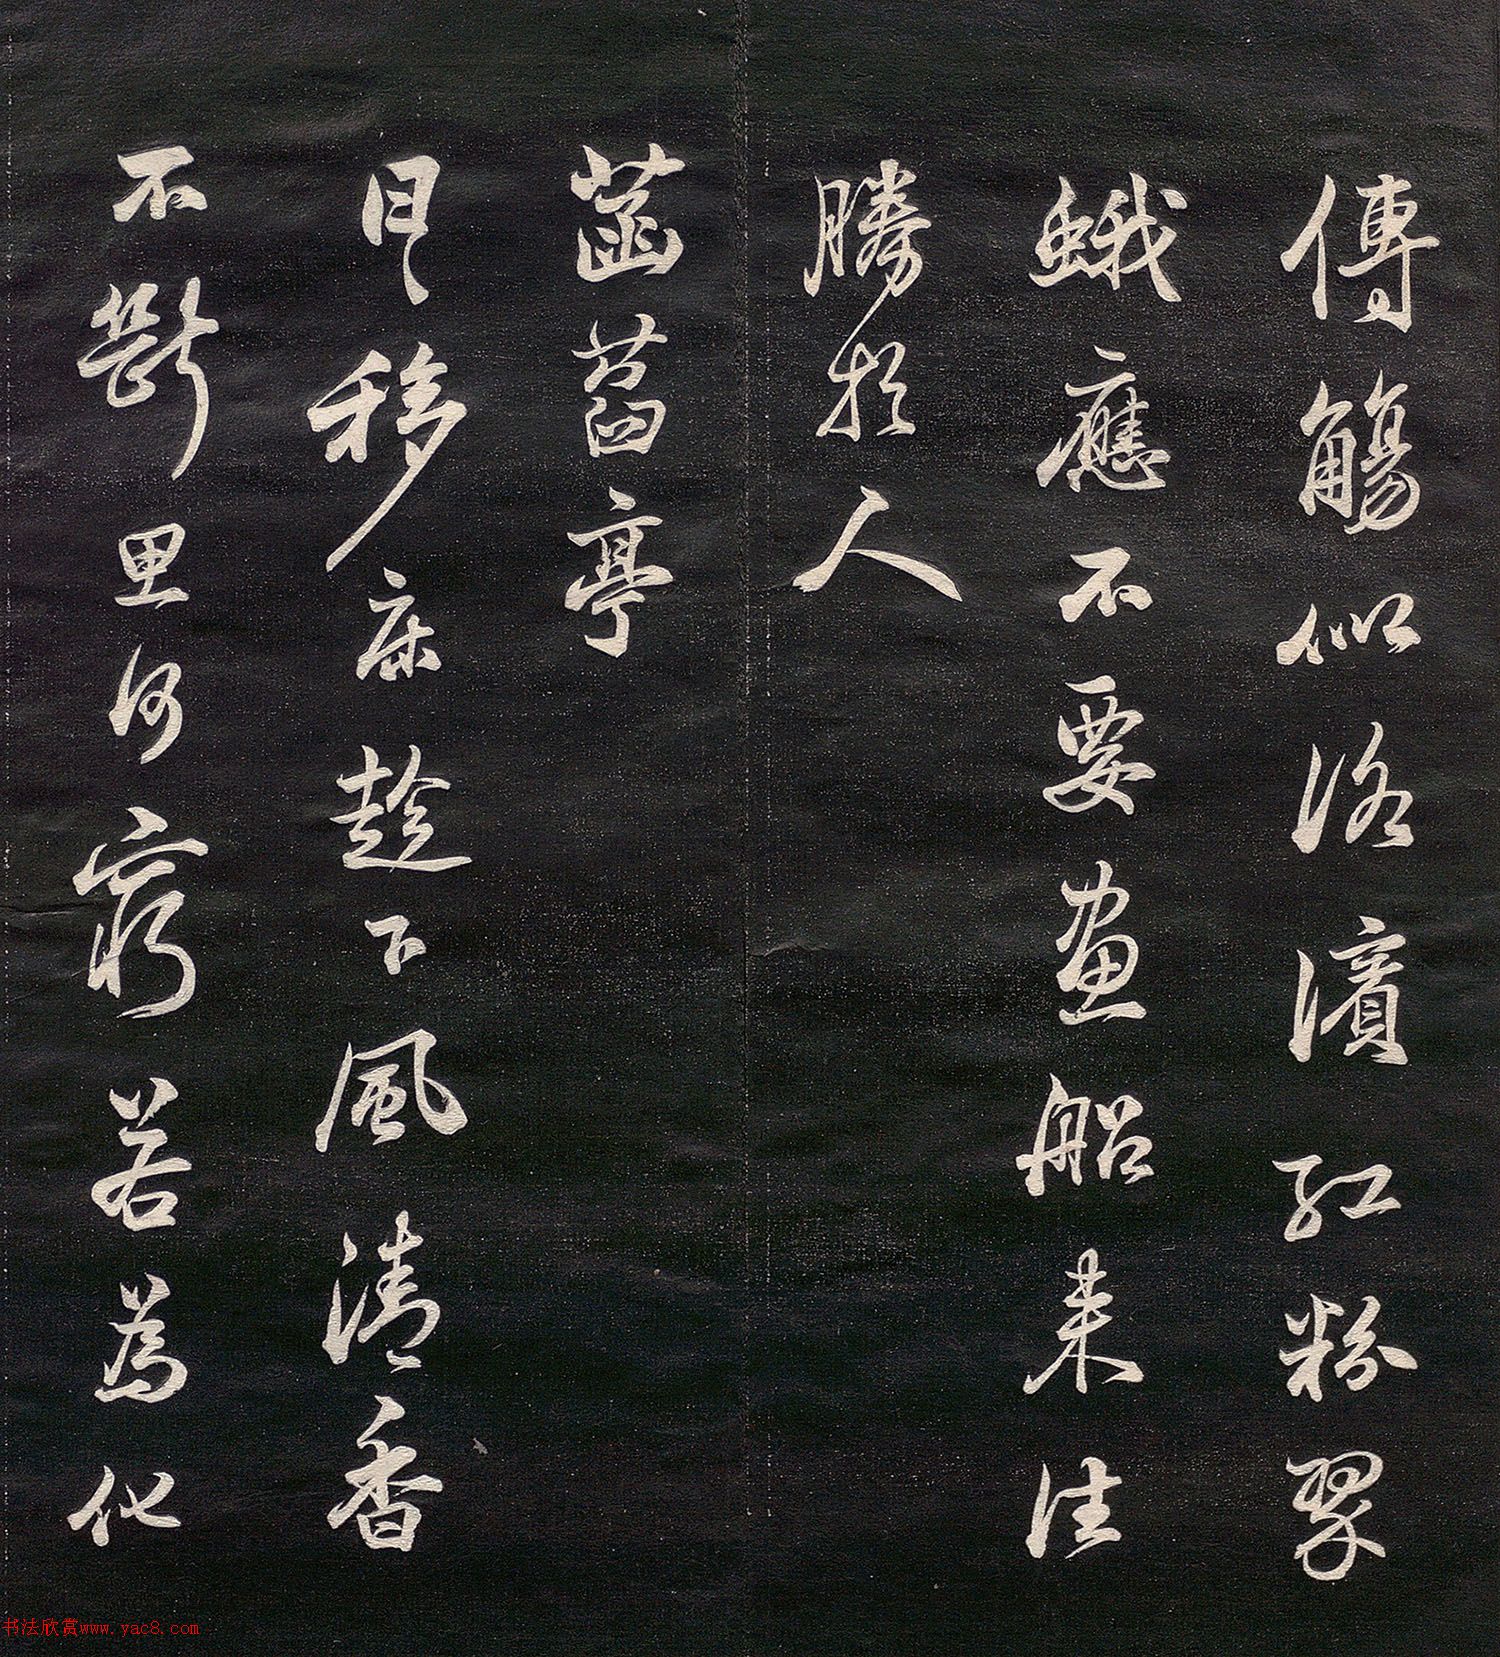 傅觴似洛濱紅粉翠
蛾應不要畫船來往
勝於人
菡萏亭
日移床趁下風清香
不斷思何窮若為化
书法欣赏www.yac8.com